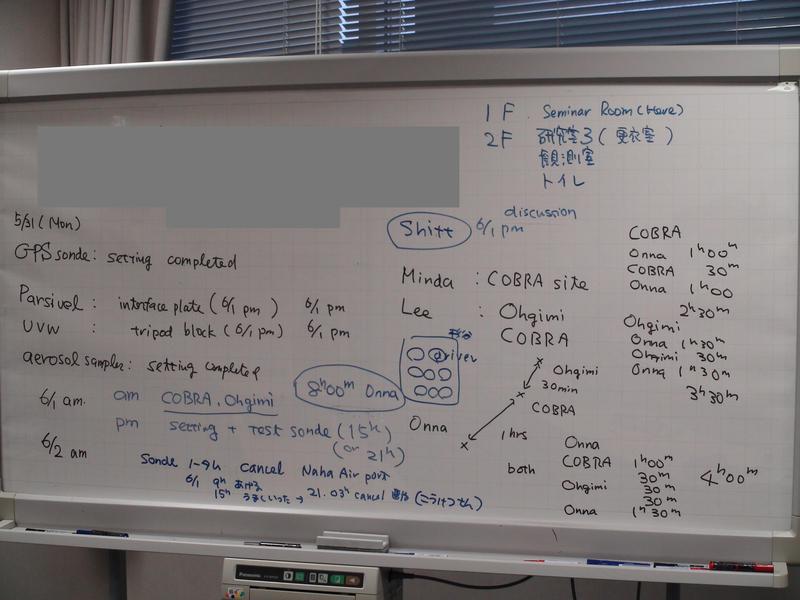 1F Seminar Room (Here)
2F 研究室3 (更衣室)
観測室
トイレ
5/31 (Mon)
GPS sonde: setting completed
Parsivel: interface plate (6/1 pm) 6/1 pm
UVW : tripod block (6/1 pm) 6/1 pm
aerosol sampler: setting completed
6/1 am. am COBRA, Ohgimi
8h00m Onna
pm setting + test sonde (15h)
(or 21h)
6/2 am
Sonde 1-9h cancel Naha Air port
6/1 9h あげる
15h うまくいった → 21.03h cancel (こうけつせん)
discussion
Shift 6/1 pm
Minda : COBRA site
Lee : Ohgimi
COBRA
driver
Ohgimi
30min
COBRA
Onna
1 hrs
COBRA
Onna 1h00m
COBRA 30m
Onna 1h00
2h30m
Ohgimi
Onna 1h30m
Ohgimi 30m
Onna 1h30m
3h30m
both
Onna
COBRA 1h00m
30m
Ohgimi 30m
30m
Onna 1h30m
4h00m
Panasonic